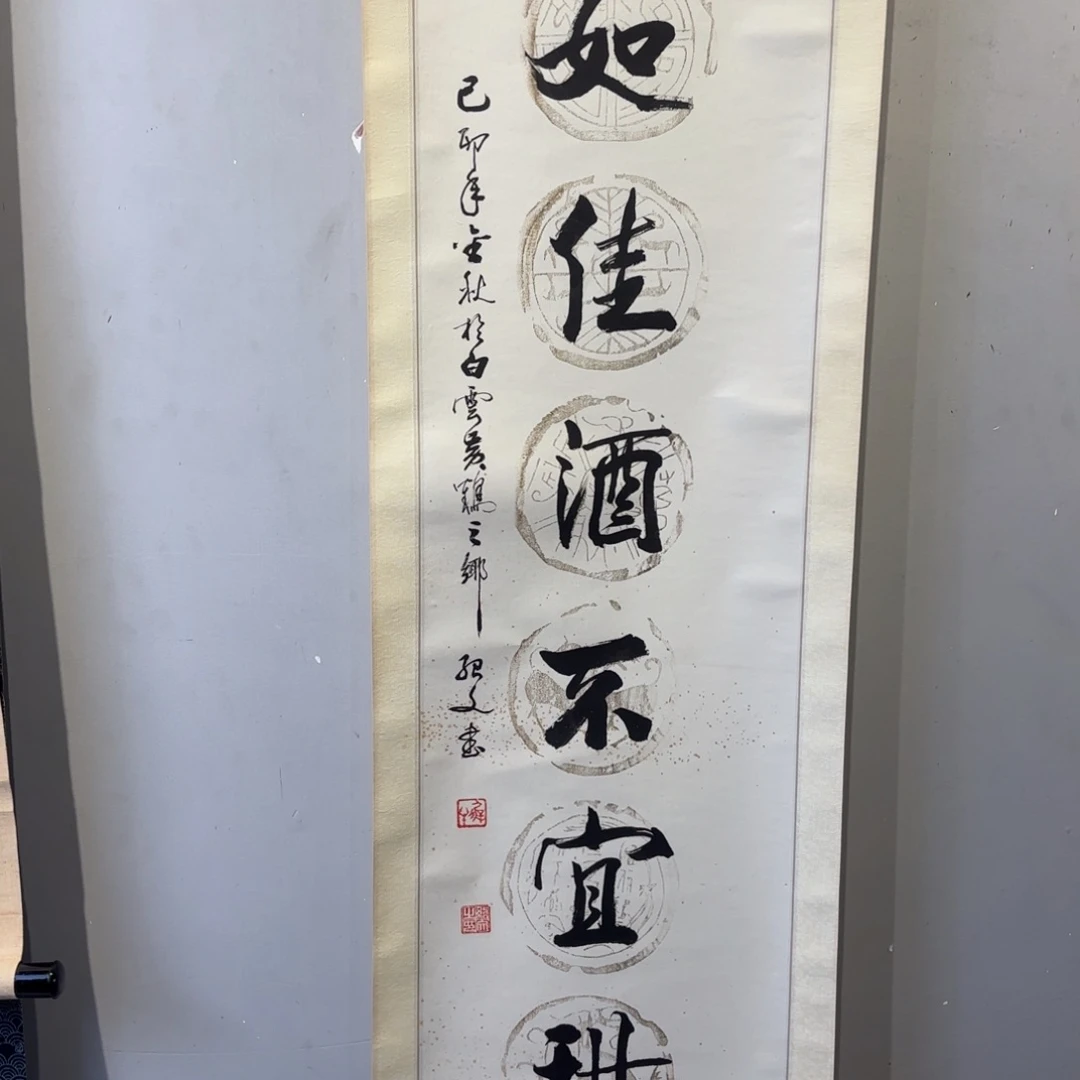 如佳酒不宜
己卯年金秋於白雲黃鶴之鄉
文書